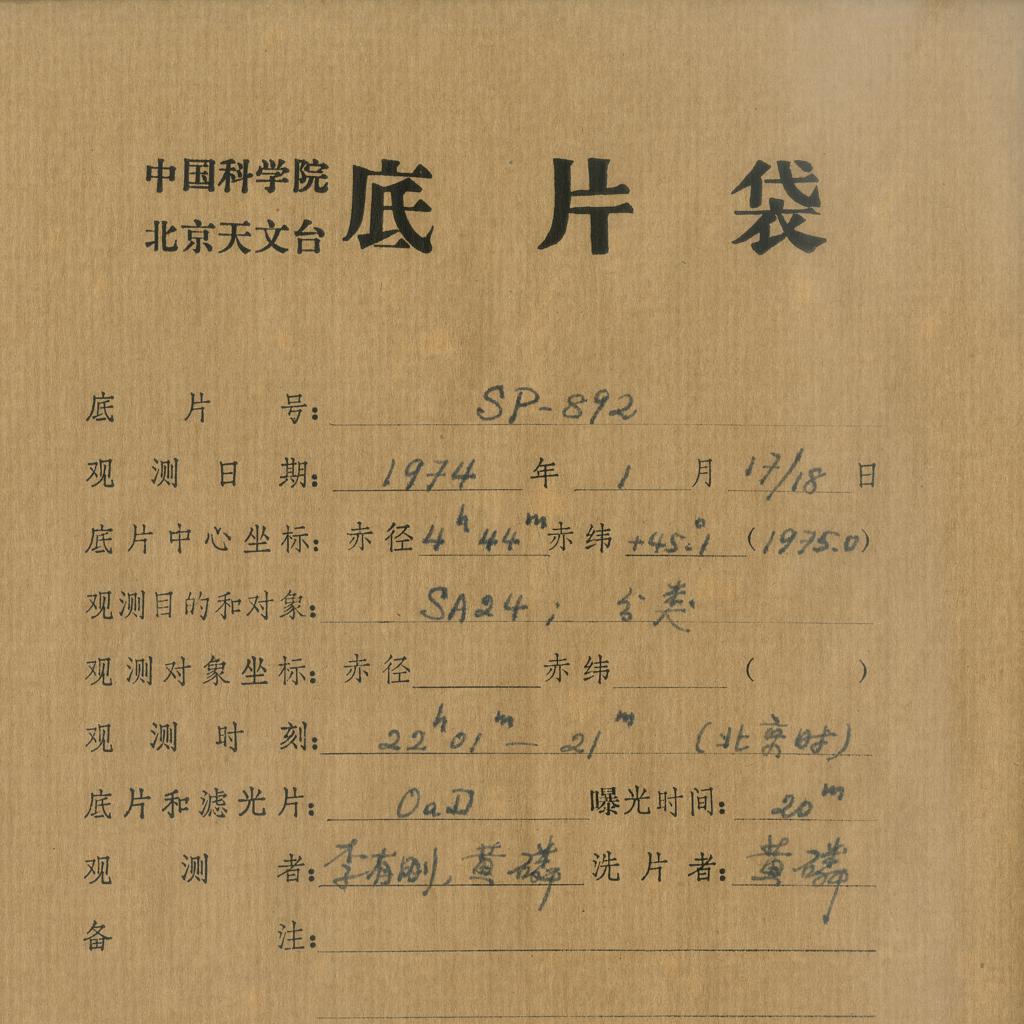 中国科学院
北京天文台
底片袋
底片号: SP-892
观测日期: 1974 年 1 月 17/18 日
底片中心坐标: 赤径 4h 44m 赤纬 +45°.1 (1975.0)
观测目的和对象: SA24; 分类
观测对象坐标: 赤径 赤纬 ( )
观测时刻: 22h01m — 21m (北京时)
底片和滤光片: OaD 曝光时间: 20m
观测者: 李有刚, 黄磷 洗片者: 黄磷
备注: